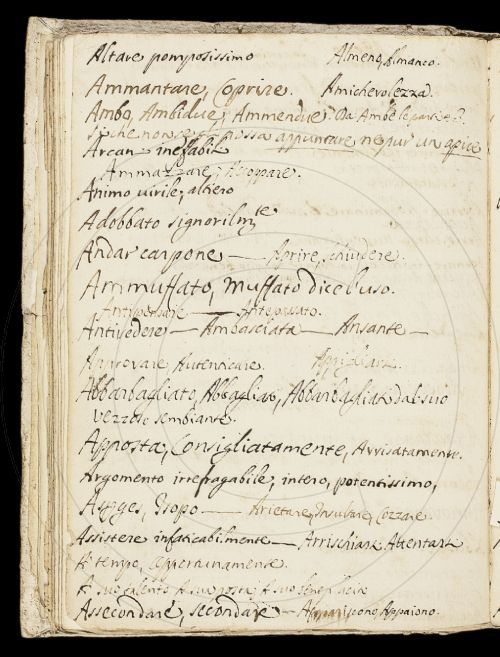 Altare pomposissimo Almeno, almanco.
Ammantare, Coprire. Amichevolezza.
Ambo, Ambidue, Ammendue. Da Ambe le parti
si che non possa appuntare neppur un apice
Arcani ineffabili
Ammazzare, Accoppare.
Animo virile, altiero
Adobbato signorilmte
Andar carpone — Aprire, schiudere.
Ammuffato, muffato dice l'uso.
Antipensare — Antipassato.
Antivedere — Ambasciata — Ansante —
Approvare Autenticare. Appigliare.
Abbarbagliato, Abbagliato, Abbarbagliate dal suo
vezzoso sembiante.
Apposta, Consigliatamente, Avvisatamente.
Argomento irrefragabile, intero, potentissimo,
Esopo — Arietare, Insultare, Cozzare.
Assistere infaticabilmente — Arrischiare Attentare
A tempo, opportunamente.
A suo talento A sua posta, A suo
Assecondare, secondare — Appariscono, Appaiono.